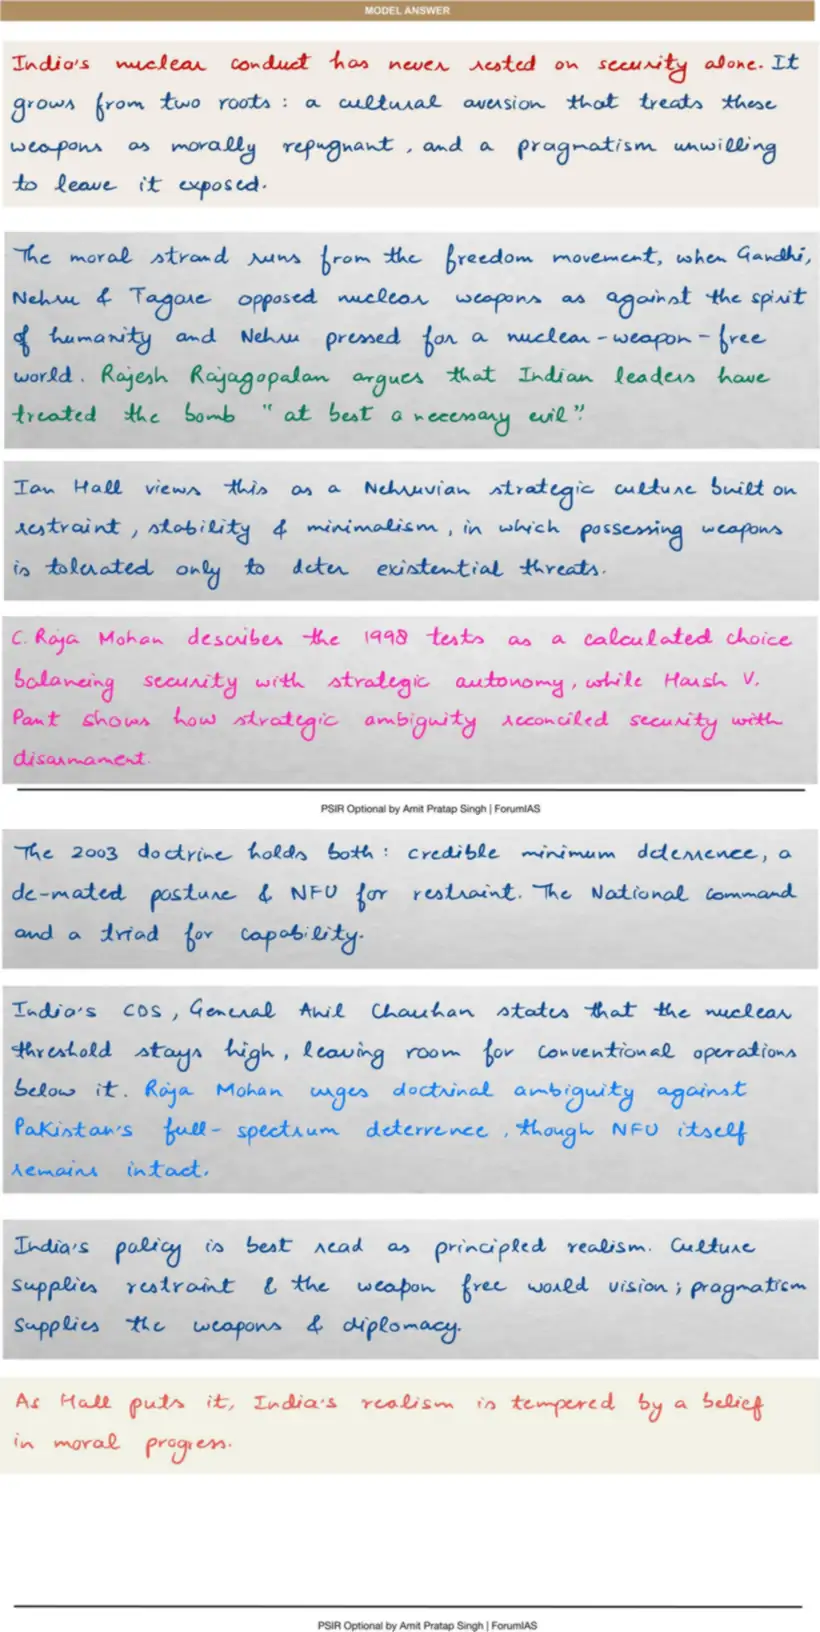 MODEL ANSWER
India's nuclear conduct has never rested on security alone. It
grows from two roots : a cultural aversion that treats these
weapons as morally repugnant, and a pragmatism unwilling
to leave it exposed.
The moral strand runs from the freedom movement, when Gandhi,
Nehru & Tagore opposed nuclear weapons as against the spirit
of humanity and Nehru pressed for a nuclear-weapon-free
world. Rajesh Rajagopalan argues that Indian leaders have
treated the bomb "at best a necessary evil".
Ian Hall views this as a Nehruvian strategic culture built on
restraint, stability & minimalism, in which possessing weapons
is tolerated only to deter existential threats.
C. Raja Mohan describes the 1998 tests as a calculated choice
balancing security with strategic autonomy, while Harsh V.
Pant shows how strategic ambiguity reconciled security with
disarmament.
PSIR Optional by Amit Pratap Singh | ForumIAS
The 2003 doctrine holds both : credible minimum deterrence, a
de-mated posture & NFU for restraint. The National Command
and a triad for capability.
India's CDS, General Anil Chauhan states that the nuclear
threshold stays high, leaving room for conventional operations
below it. Raja Mohan urges doctrinal ambiguity against
Pakistan's full-spectrum deterrence, though NFU itself
remains intact.
India's policy is best read as principled realism. Culture
supplies restraint & the weapon free world vision; pragmatism
supplies the weapons & diplomacy.
As Hall puts it, India's realism is tempered by a belief
in moral progress.
PSIR Optional by Amit Pratap Singh | ForumIAS